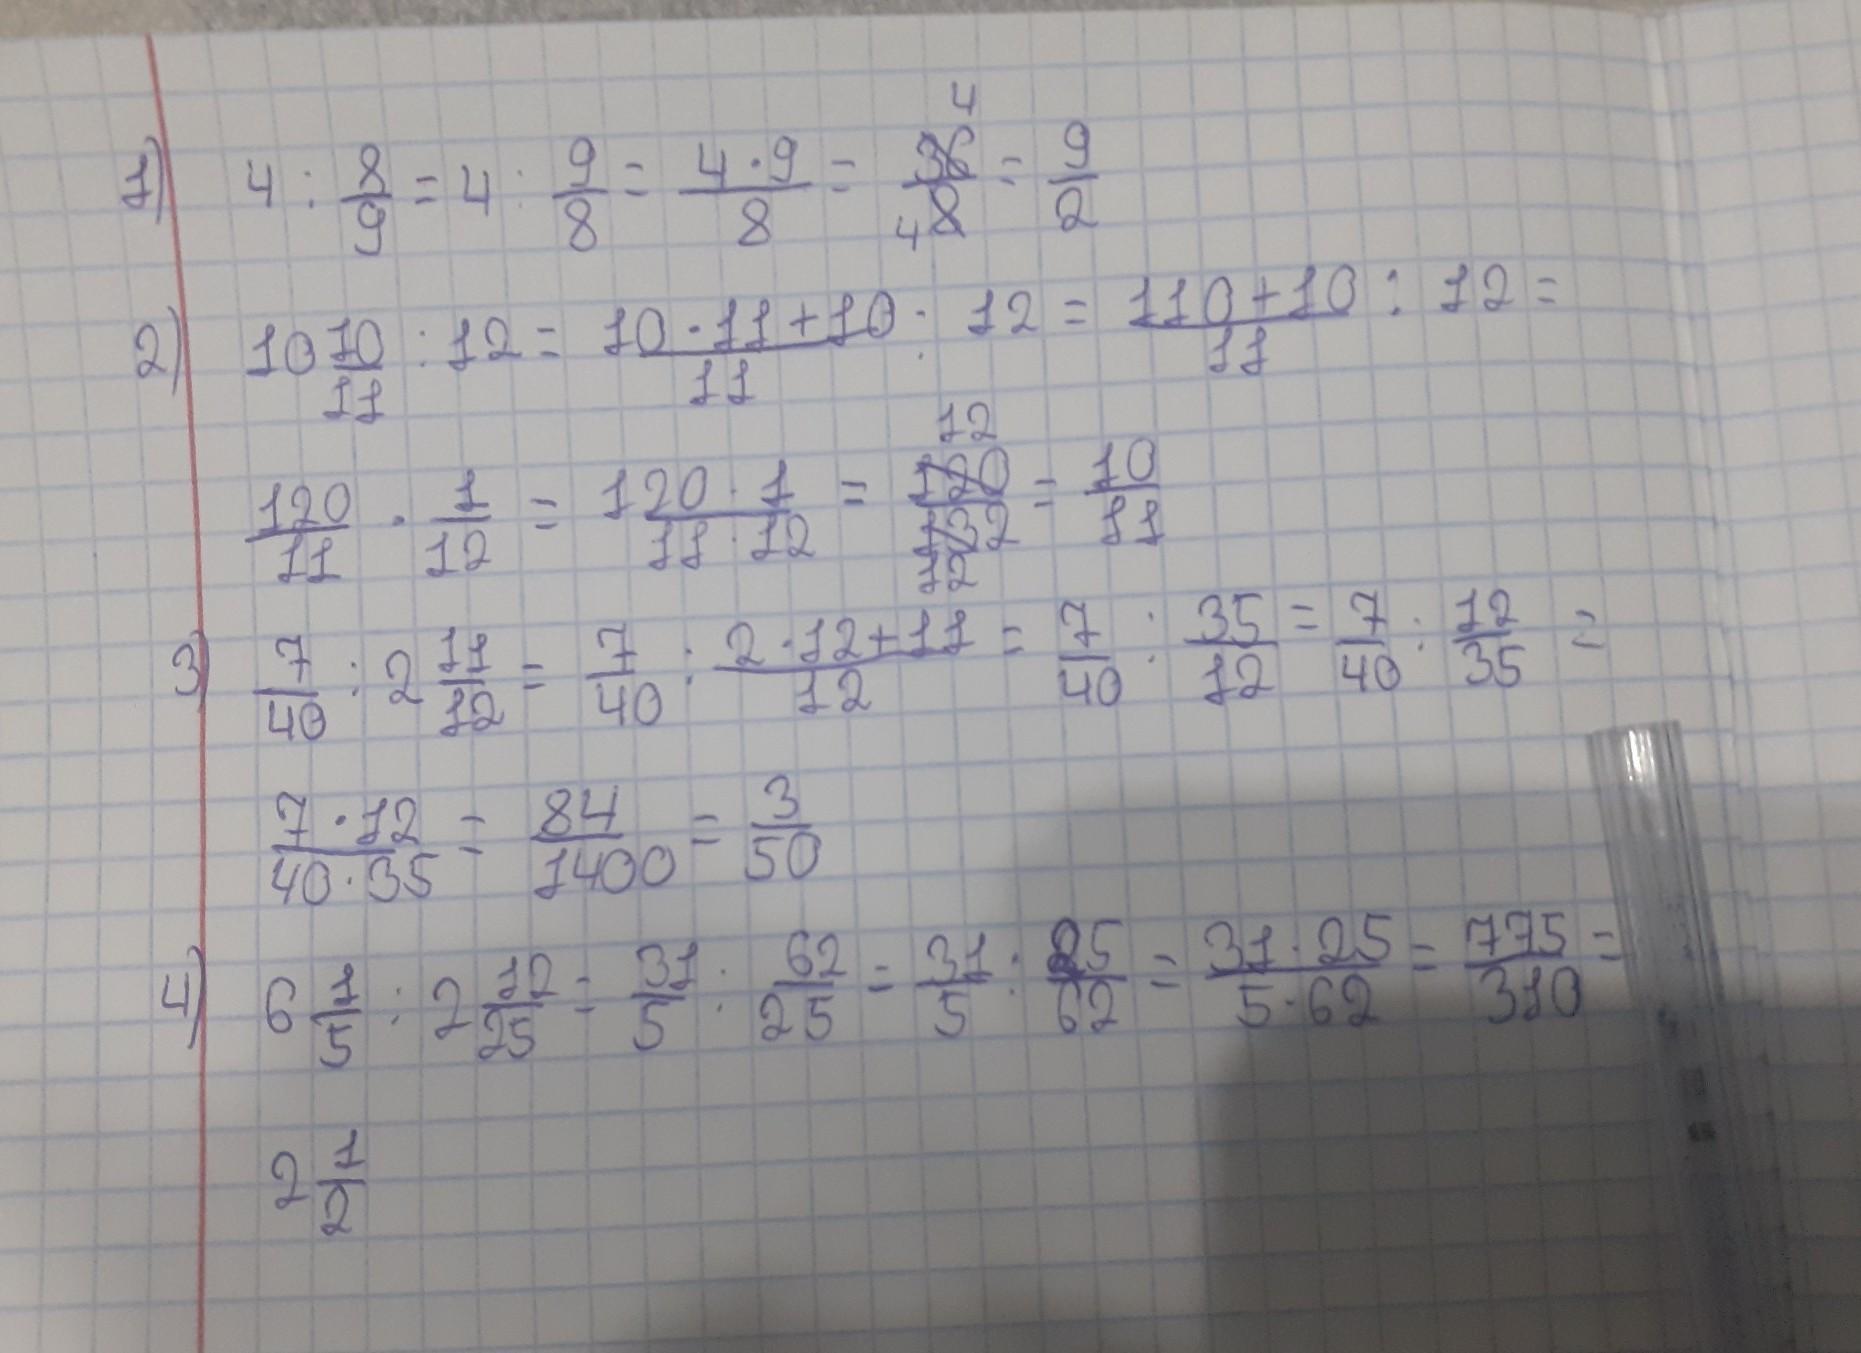 1) 4 : 8/9 = 4 : 9/8 = 4·9/8 = 36/8 = 9/2
4
4
2) 10 10/11 : 12 = 10·11+10/11 : 12 = 110+10/11 : 12 =
120/11 · 1/12 = 120·1/11·12 = 120/132 = 10/11
12
12
3) 7/40 : 2 11/12 = 7/40 : 2·12+11/12 = 7/40 : 35/12 = 7/40 : 12/35 =
7·12/40·35 = 84/1400 = 3/50
4) 6 1/5 : 2 12/25 = 31/5 : 62/25 = 31/5 : 25/62 = 31·25/5·62 = 775/310 =
2 1/2